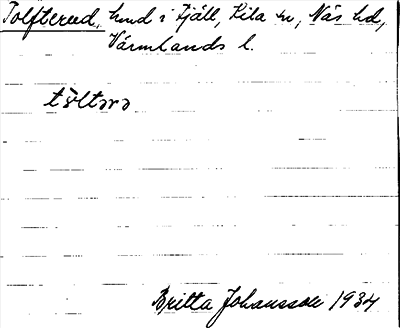 Tolfterud, hmd i Fjäll, Kila sn, Näs hd,
Värmlands l.
tòltərə
Britta Johansson 1934